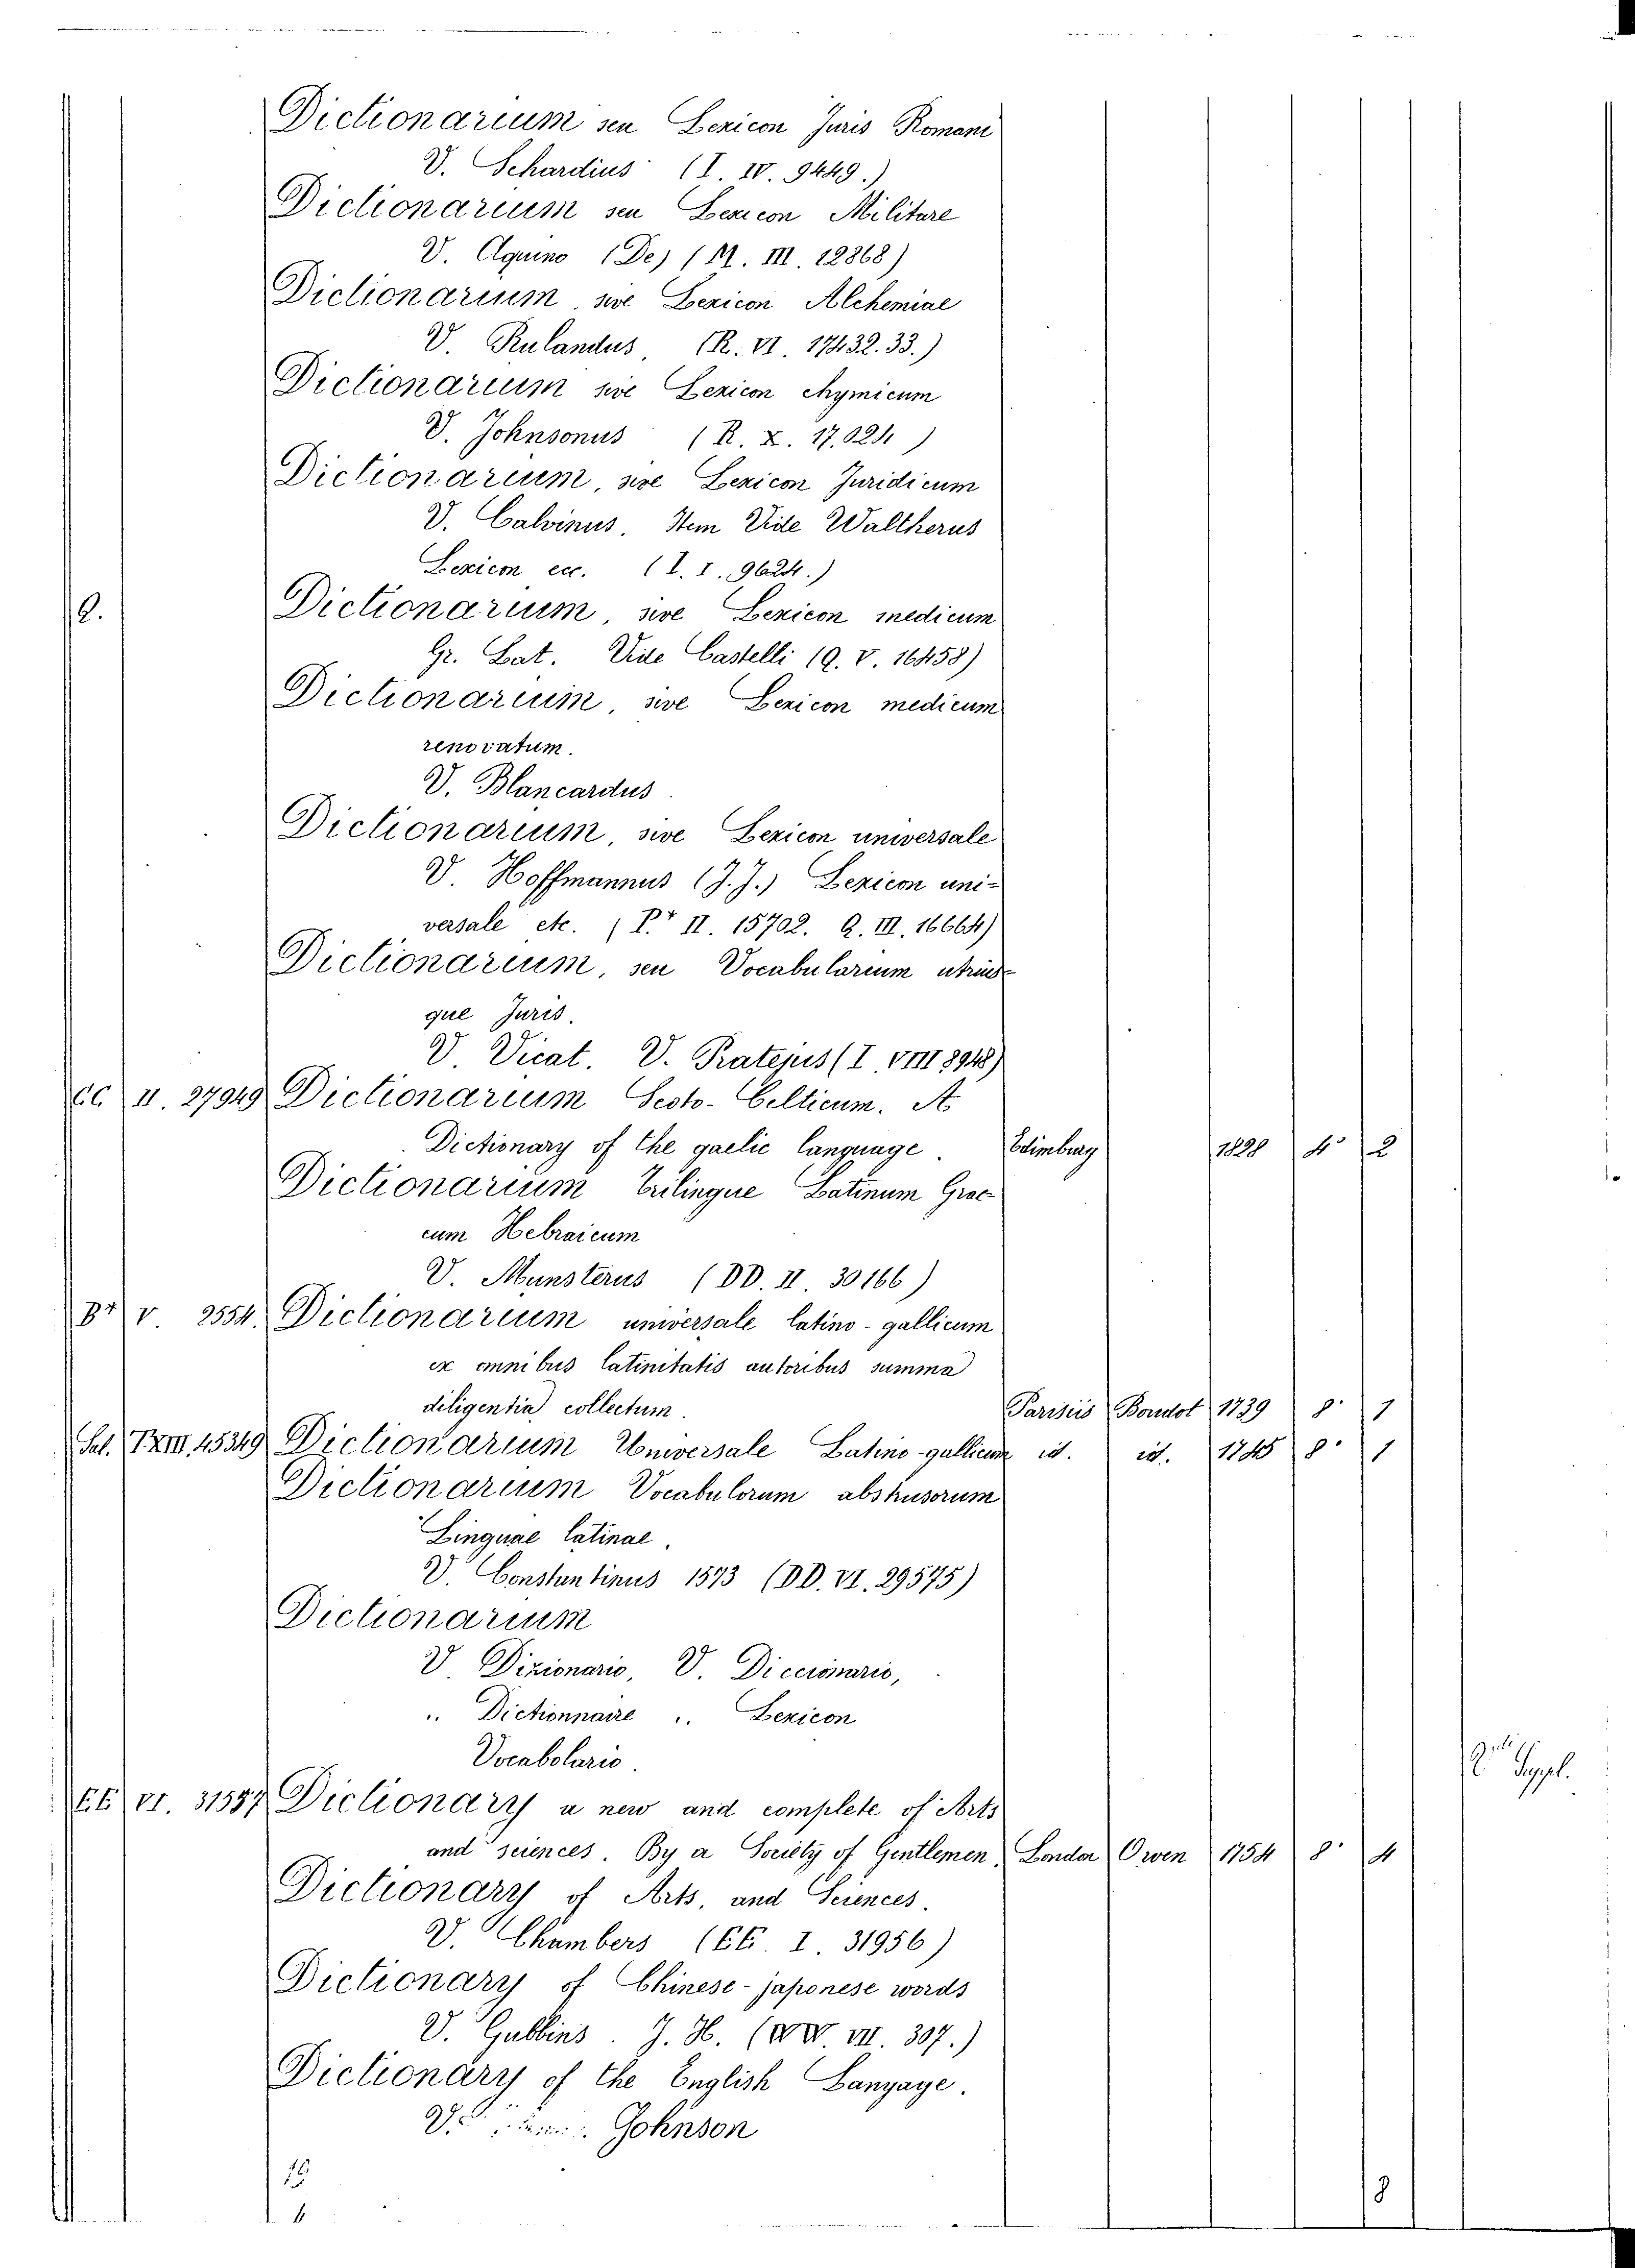 Dictionarium seu Lexicon Juris Romani
V. Schardius (I. IV. 9449.)
Dictionarium seu Lexicon Militare
V. Aquino (De) (M. III. 12868)
Dictionarium sive Lexicon Alchemiae
V. Rulandus, (R. VI. 17432. 33.)
Dictionarium sive Lexicon chymicum
V. Johnsonus (R. X. 17.024)
Dictionarium, sive Lexicon Juridicum
V. Calvinus. Item Vide Waltherus
Lexicon ecc. (I. I. 9624.)
Q. Dictionarium, sive Lexicon medicum
Gr. Lat. Vide Castelli (Q. V. 16458)
Dictionarium, sive Lexicon medicum
renovatum.
V. Blancardus.
Dictionarium, sive Lexicon universale
V. Hoffmannus (J. J.) Lexicon uni-
versale etc. (Pr II. 15702. Q. III. 16664)
Dictionarium, seu Vocabularium utrius-
que Juris.
V. Vicat. V. Pratejus (I. VIII 8948)
CC II. 27949 Dictionarium Scoto-Celticum. A
Dictionary of the gaelic language. Edimburg 1828 4° 2
Dictionarium trilingue Latinum Grae
cum Hebraicum
V. Munsterus (DD. II. 30166)
Br V. 2554. Dictionarium universale latino-gallicum
ex omnibus latinitatis autoribus summa
diligentia collectum. Parisiis Boudot 1739 8° 1
Sal. TXIII. 45349 Dictionarium Universale Latino-gallicum id. id. 1745 8° 1
Dictionarium Vocabulorum abstrusorum
Linguae latinae.
V. Constantinus 1573 (DD. VI. 29575)
Dictionarium
V. Dizionario, V. Diccionario,
" Dictionnaire " Lexicon
Vocabolario.
EE VI. 31557 Dictionary a new and complete of Arts
and sciences. By a Society of Gentlemen. London Owen 1754 8° 4
Suppl.
Dictionary of Arts, and Sciences.
V. Chambers (EE. I. 31956)
Dictionary of Chinese-japonese words
V. Gubbins. J. H. (VII. 307.)
Dictionary of the English Langage.
V. Johnson
8